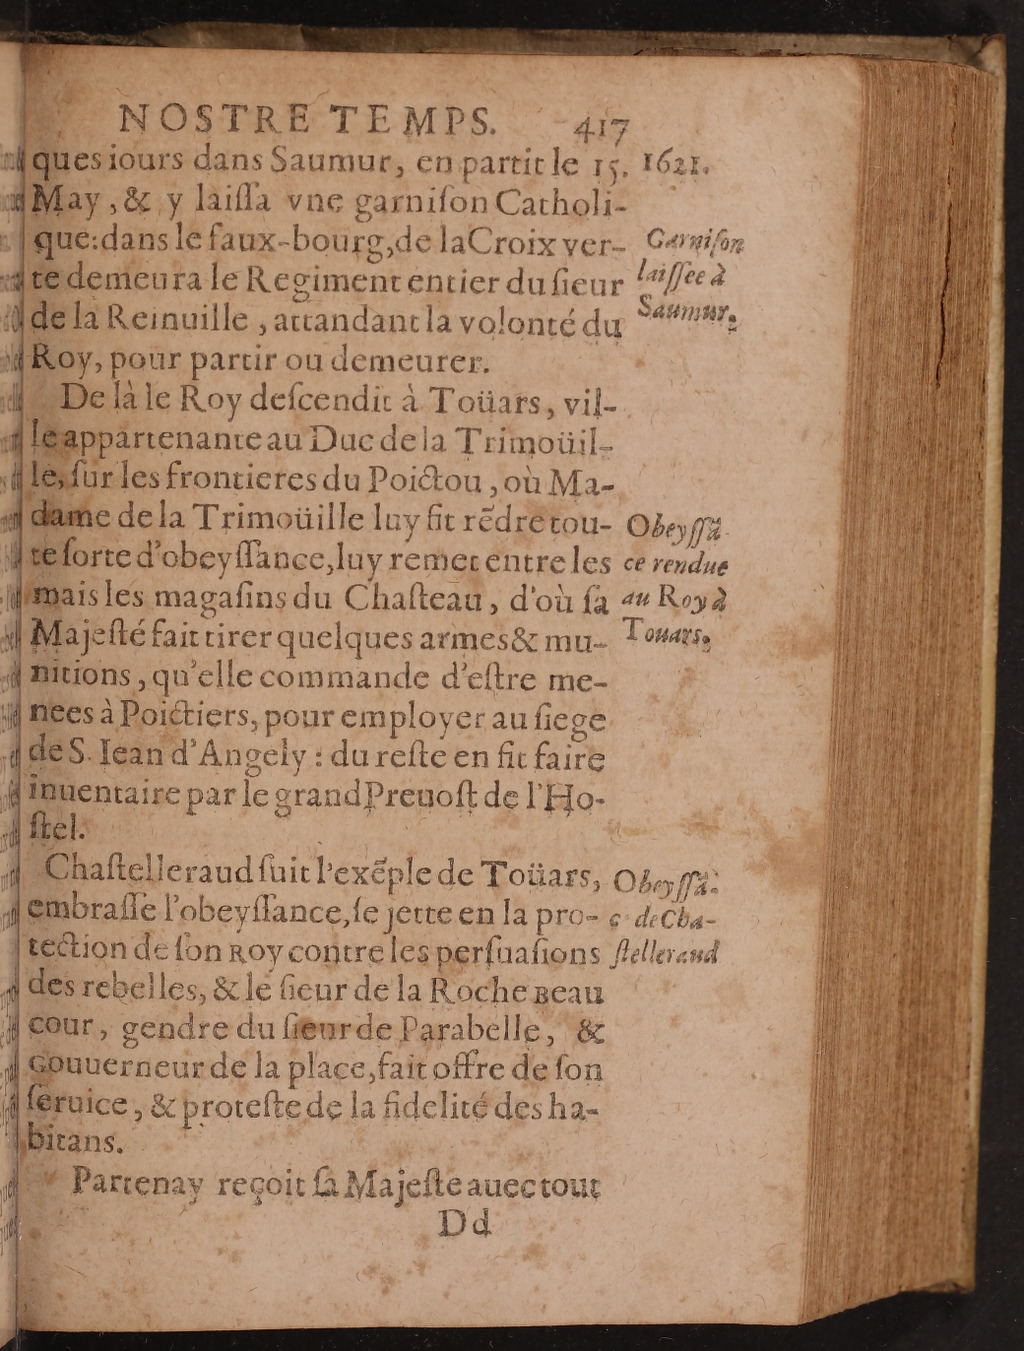 NOSTRE TEMPS. 417
ques iours dans Saumur, en partit le 15. 1621.
May, & y laiſſa vne garniſon Catholi-
que: dans le faux-bourg, de la Croix ver- Garniſon
te demeura le Regiment entier du ſieur laiſſee à
de la Reinuille, attandant la volonté du Saumur.
Roy, pour partir ou demeurer.
De là le Roy deſcendit à Toüars, vil-
le appartenante au Duc de la Trimoüil-
le, ſur les frontieres du Poictou, où Ma-
dame de la Trimoüille luy fit rẽdre tou- Obeyſſã
te ſorte d'obeyſſance, luy remet entre les ce rendue
mais les magaſins du Chaſteau, d'où ſa au Roy à
Majeſté fait tirer quelques armes & mu- Touars.
nitions, qu'elle commande d'eſtre me-
nees à Poictiers, pour employer au ſiege
de S. Iean d'Angely: du reſte en fit faire
inuentaire par le grand Preuoſt de l'Ho-
ſtel.
Chaſtelleraud ſuit l'exẽple de Toüars, Obeyſſã-
embraſſe l'obeyſſance, ſe jette en la pro- c de Cha-
tection de ſon Roy contre les perſuaſions ſtelleraud
des rebelles, & le ſieur de la Rocheneau
cour, gendre du ſieur de Parabelle, &
Gouuerneur de la place, fait offre de ſon
ſeruice, & proteſte de la fidelité des ha-
bitans.
Partenay reçoit ſa Majeſte auec tout
Dd